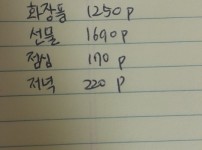 화장품 1250 p
선물 1690 p
점심 170 p
저녁 220 p